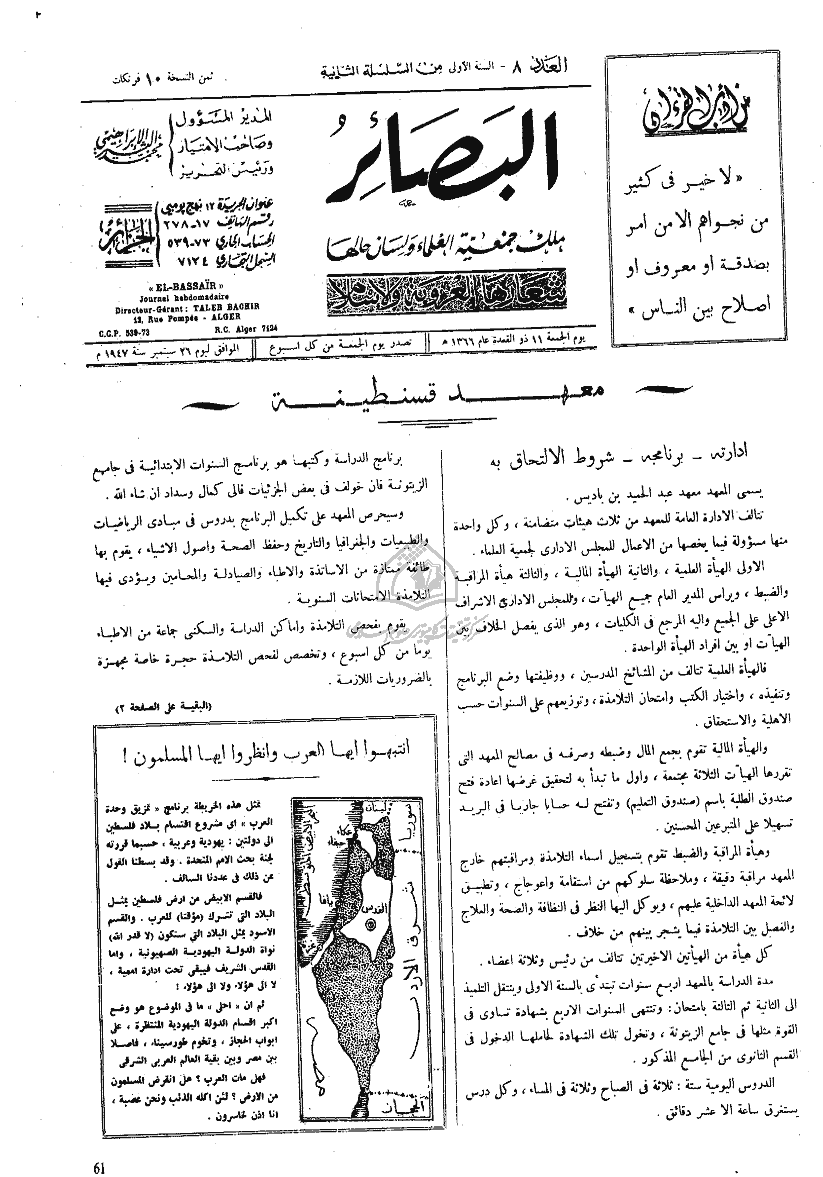 العدد ٨ - السنة الاولى من السلسلة الثانية
ثمن النسخة ١٠ فرنكات
من أدب القرءان
« لا خير فى كثير
من نجواهم الا من امر
بصدقة او معروف او
اصلاح بين الناس »
البصائر
ملك جمعية العلماء ولسان حالها
شعارها العروبة والاسلام
المدير المسؤول
وصاحب الامتياز
ورئيس التحرير
محمد البشير الابراهيمي
عنوان الجريدة ١٢ نهج بومبي
رقم الهاتف ١٧-٢٧٨
الحساب الجاري ٧٣-٥٣٩
السجل التجاري ٧١٢٤
الجزائر
« EL-BASSAÏR »
Journal hebdomadaire
Directeur-Gérant : TALEB BACHIR
12, Rue Pompée - ALGER
C.C.P. 539-73 R.C. Alger 7124
يوم الجمعة ١١ ذو القعدة عام ١٣٦٦ هـ
تصدر يوم الجمعة من كل اسبوع
الموافق ليوم ٢٦ سبتمبر سنة ١٩٤٧ م
معهد قسنطينة
ادارته - برنامجه - شروط الالتحاق به
يسمى المعهد معهد عبد الحميد بن باديس .
تتالف الادارة العامة للمعهد من ثلاث هيئات متضامنة ، وكل واحدة
منها مسؤولة فيما يخصها من الاعمال للمجلس الادارى لجمعية العلماء .
الاولى الهيأة العلمية ، والثانية الهيأة المالية ، والثالثة هيأة المراقبة
والضبط ، ويراس المدير العام جميع الهيآت ، وللمجلس الادارى الاشراف
الاعلى على الجميع واليه المرجع فى الكليات ، وهو الذى يفصل الخلاف بين
الهيآت او بين افراد الهيأة الواحدة .
فالهيأة العلمية تتالف من المشائخ المدرسين ، ووظيفتها وضع البرنامج
وتنفيذه ، واختيار الكتب وامتحان التلامذة ، وتوزيعهم على السنوات حسب
الاهلية والاستحقاق .
والهيأة المالية تقوم بجمع المال وضبطه وصرفه فى مصالح المعهد التى
تقررها الهيآت الثلاثة مجتمعة ، واول ما تبدأ به لتحقيق غرضها اعادة فتح
صندوق الطلبة باسم (صندوق التعليم) وتفتح له حسابا جاريا فى البريد
تسهيلا على المتبرعين المحسنين .
وهيأة المراقبة والضبط تقوم بتسجيل اسماء التلامذة ومراقبتهم خارج
المعهد مراقبة دقيقة ، وملاحظة سلوكهم من استقامة واعوجاج ، وتطبيق
لائحة المعهد الداخلية عليهم ، ويوكل اليها النظر فى النظافة والصحة والعلاج
والفصل بين التلامذة فيما يشجر بينهم من خلاف .
كل هيأة من الهيأتين الاخيرتين تتالف من رئيس وثلاثة اعضاء .
مدة الدراسة بالمعهد اربع سنوات تبتدى بالسنة الاولى وينتقل التلميذ
الى الثانية ثم الثالثة بامتحان: وتنتهى السنوات الاربع بشهادة تساوى فى
القوة مثلها فى جامع الزيتونة ، وتخول تلك الشهادة لحاملها الدخول فى
القسم الثانوى من الجامع المذكور .
الدروس اليومية ستة : ثلاثة فى الصباح وثلاثة فى المساء ، وكل درس
يستغرق ساعة الا عشر دقائق .
برنامج الدراسة وكتبها هو برنامج السنوات الابتدائية فى جامع
الزيتونة فان خولف فى بعض الجزئيات فالى كمال وسداد ان شاء الله .
وسيحرص المعهد على تكميل البرنامج بدروس فى مبادى الرياضيات
والطبيعيات والجغرافيا والتاريخ وحفظ الصحة واصول الاشياء ، يقوم بها
طائفة ممتازة من الاساتذة والاطباء والصيادلة والمحامين ويؤدى فيها
التلامذة الامتحانات السنوية .
يقوم بفحص التلامذة واماكن الدراسة والسكنى جماعة من الاطباء
يوما من كل اسبوع ، وتخصص لفحص التلامذة حجرة خاصة مجهزة
بالضروريات اللازمة .
(البقية على الصفحة ٢)
انتبهوا ايها العرب وانظروا ايها المسلمون !
تمثل هذه الخريطة برنامج « تمزيق وحدة
العرب » اى مشروع اقتسام بلاد فلسطين
الى دولتين : يهودية وعربية ، حسبما قررته
لجنة بحث الامم المتحدة . وقد بسطنا القول
عن ذلك فى عددنا السالف .
فالقسم الابيض من ارض فلسطين يمثل
البلاد التى تترك (مؤقتا) للعرب . والقسم
الاسود يمثل البلاد التى ستكون (لا قدر الله)
نواة الدولة اليهودية الصهيونية ، واما
القدس الشريف فيبقى تحت ادارة اممية ،
لا الى هؤلاء ولا الى هؤلاء !
ثم ان « احلى » ما فى الموضوع هو وضع
اكبر اقسام الدولة اليهودية المنتظرة ، على
ابواب الحجاز ، وتخوم طورسينا ، فاصلا
بين مصر وبين بقية العالم العربى الشرقى
فهل مات العرب ؟ هل انقرض المسلمون
من الارض ؟ لئن اكله الذئب ونحن عصبة ،
انا اذن لخاسرون .
البحر الابيض المتوسط
لبنان
سوريا
عكاء
حيفا
يافا
القدس
غزة
شرق الاردن
مصر
الحجاز
61